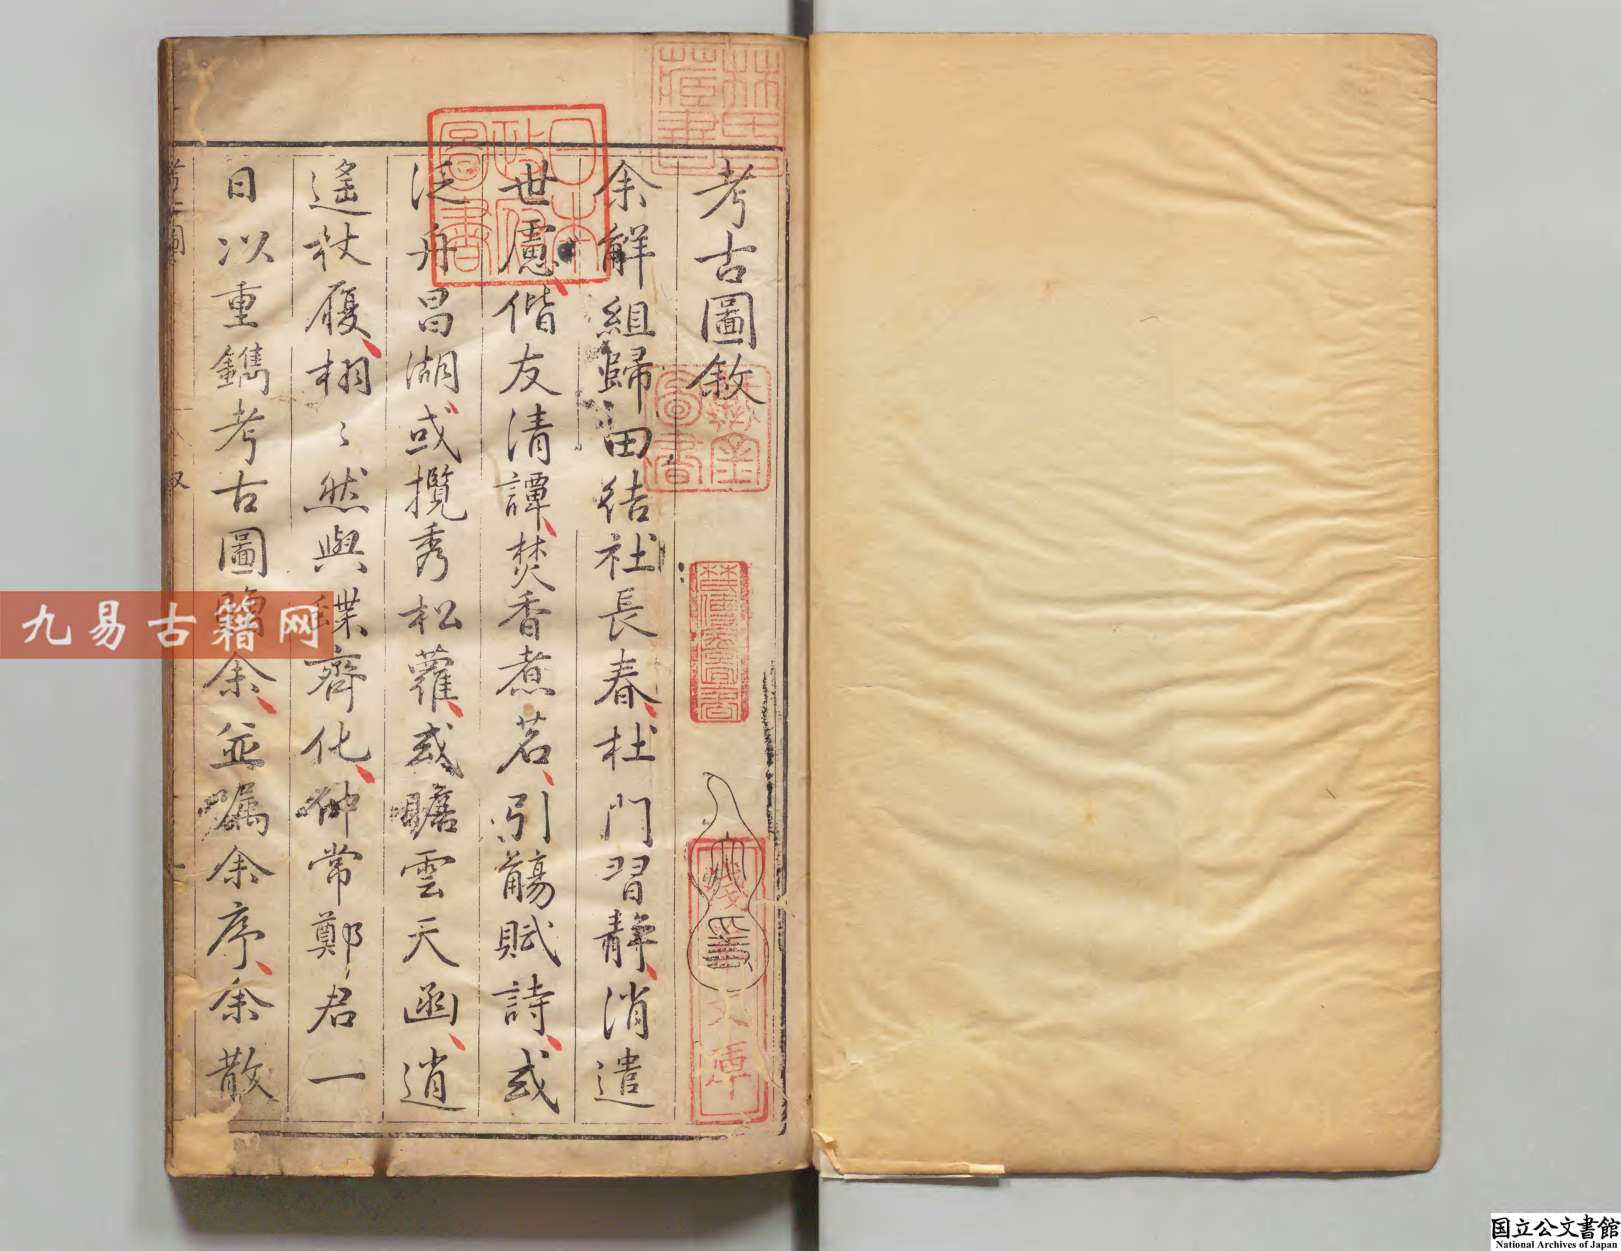 考古圖敘
余解組歸田結社長春杜門習靜消遣
世慮偕友清譚焚香煮茗引觴賦詩或
泛舟昌湖或攬秀松蘿或瞻雲天函逍
遙杖履栩〻然與蝶齊化仲常鄭君一
日以重鐫考古圖歸余並囑余序余散
林氏藏書
日本政府圖書
九易古籍网
国立公文書館
National Archives of Japan